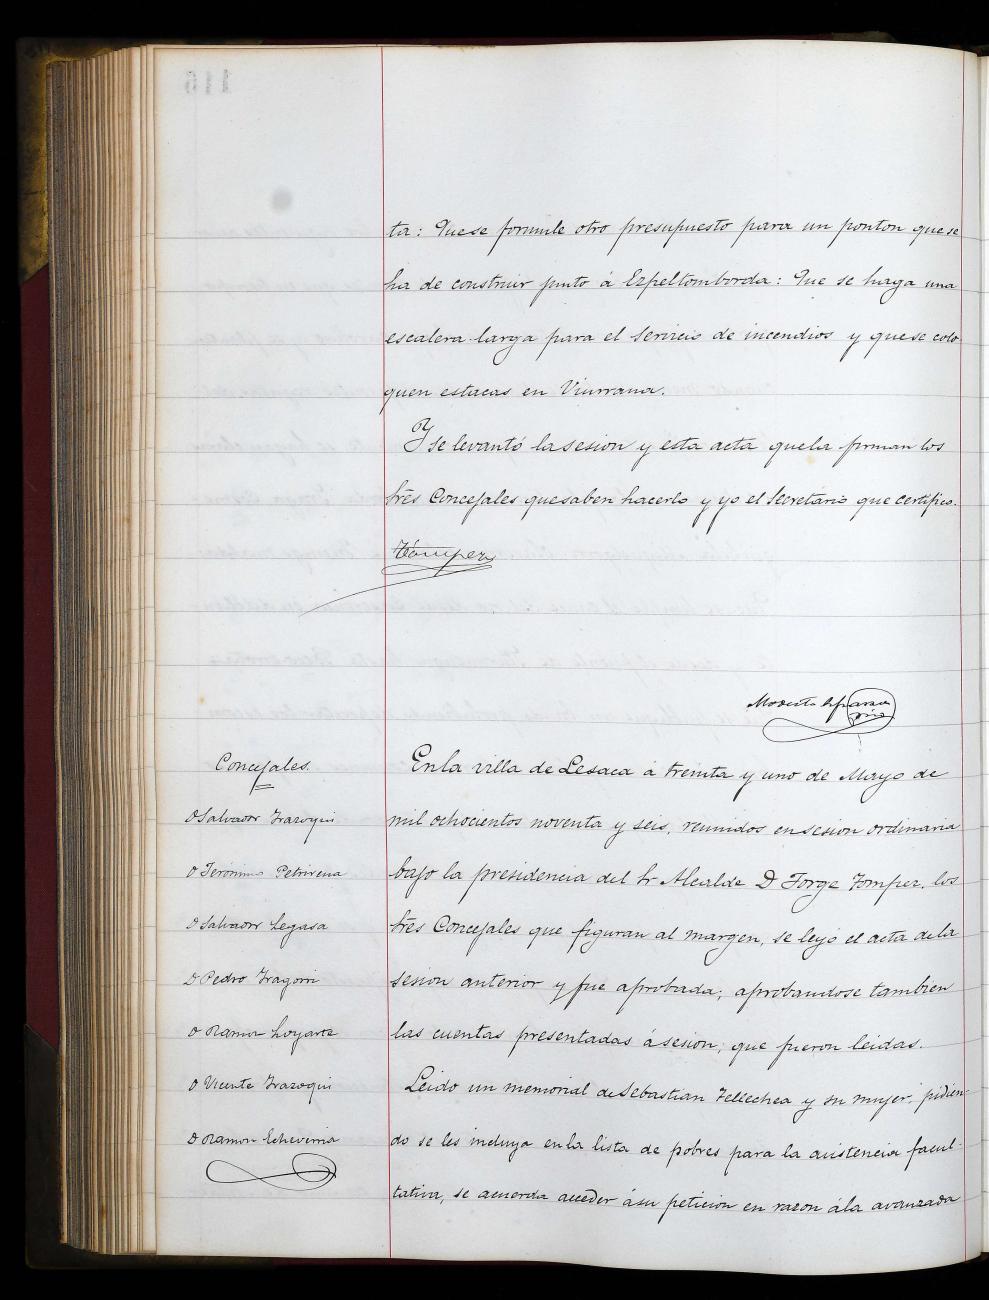 ta: Que se formule otro presupuesto para un ponton que se
ha de construir junto á Ezpeltomborda: Que se haga una
escalera larga para el servicio de incendios y que se colo
quen estacas en Viurrana.
Y se levantó la sesion y esta acta que la firman los
Srēs Concejales que saben hacerlo y yo el Secretario que certifico.
Tómpez
Modesto
Concejales.
D Salvador Irazoqui
D Jerónimo Petrirena
D Salvador Legasa
D Pedro Iragorri
D Ramon Loyarte
D Vicente Irazoqui
D Ramon Echeverria
En la villa de Lesaca á treinta y uno de Mayo de
mil ochocientos noventa y seis, reunidos en sesion ordinaria
bajo la presidencia del Sr Alcalde D Jorge Tompez, los
Srēs Concejales que figuran al margen, se leyó el acta de la
sesion anterior y fue aprobada; aprobandose tambien
las cuentas presentadas á sesion, que fueron leidas.
Leido un memorial de Sebastian Tellechea y su mujer, pidien-
do se les incluya en la lista de pobres para la asistencia facul-
tativa, se acuerda acceder á su peticion en razon á la avanzada